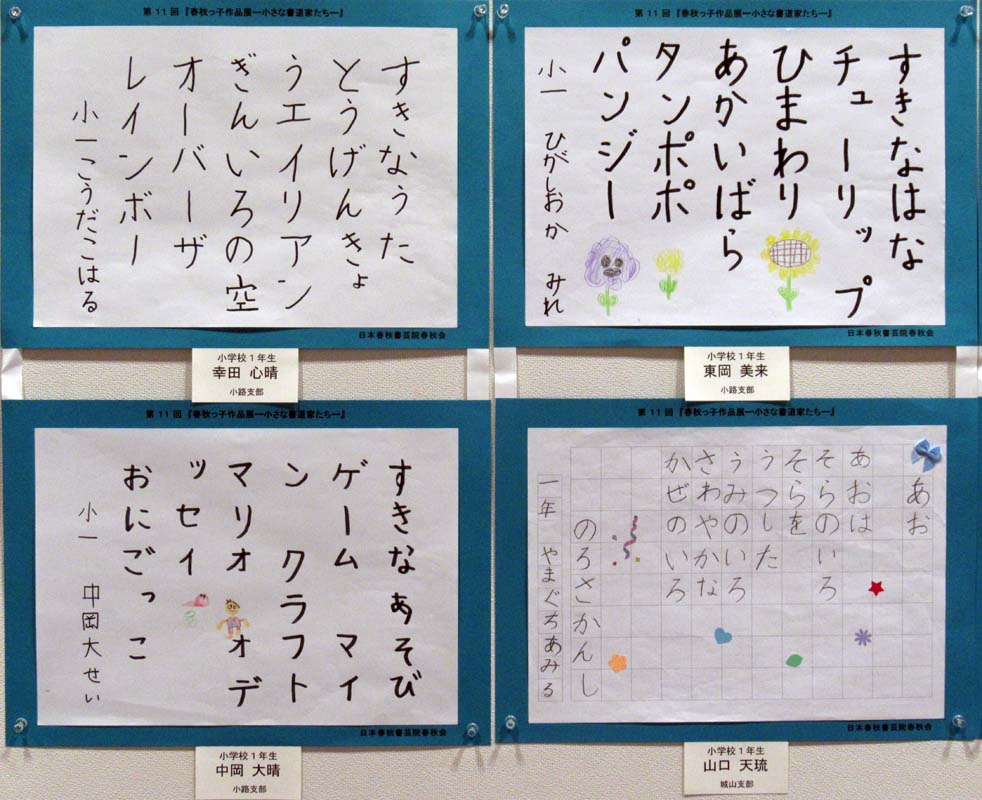 第11回『春秋っ子作品展ー小さな書道家たちー』
すきなうた
とうげんきょ
うエイリアン
ぎんいろの空
オーバーザ
レインボー
小一こうだこはる
日本春秋書芸院春秋会
小学校1年生
幸田 心晴
小路支部
第11回『春秋っ子作品展ー小さな書道家たちー』
すきなはな
チューリップ
ひまわり
あかいばら
タンポポ
パンジー
小一 ひがしおか みれ
日本春秋書芸院春秋会
小学校1年生
東岡 美来
小路支部
第11回『春秋っ子作品展ー小さな書道家たちー』
すきなあそび
ゲーム マイ
ン クラフト
マリオ オデ
ッセイ
おにごっこ
小一 中岡大せい
日本春秋書芸院春秋会
小学校1年生
中岡 大晴
小路支部
第11回『春秋っ子作品展ー小さな書道家たちー』
あお
あおは
そらのいろ
そらを
うつした
うみのいろ
さわやかな
かぜのいろ
のろさかんし
一年 やまぐちあみる
日本春秋書芸院春秋会
小学校1年生
山口 天琉
城山支部